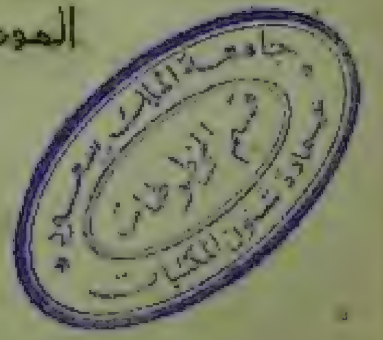 المو
جامعة الملك سعود
قسم المخطوطات
عمادة شئون المكتبات